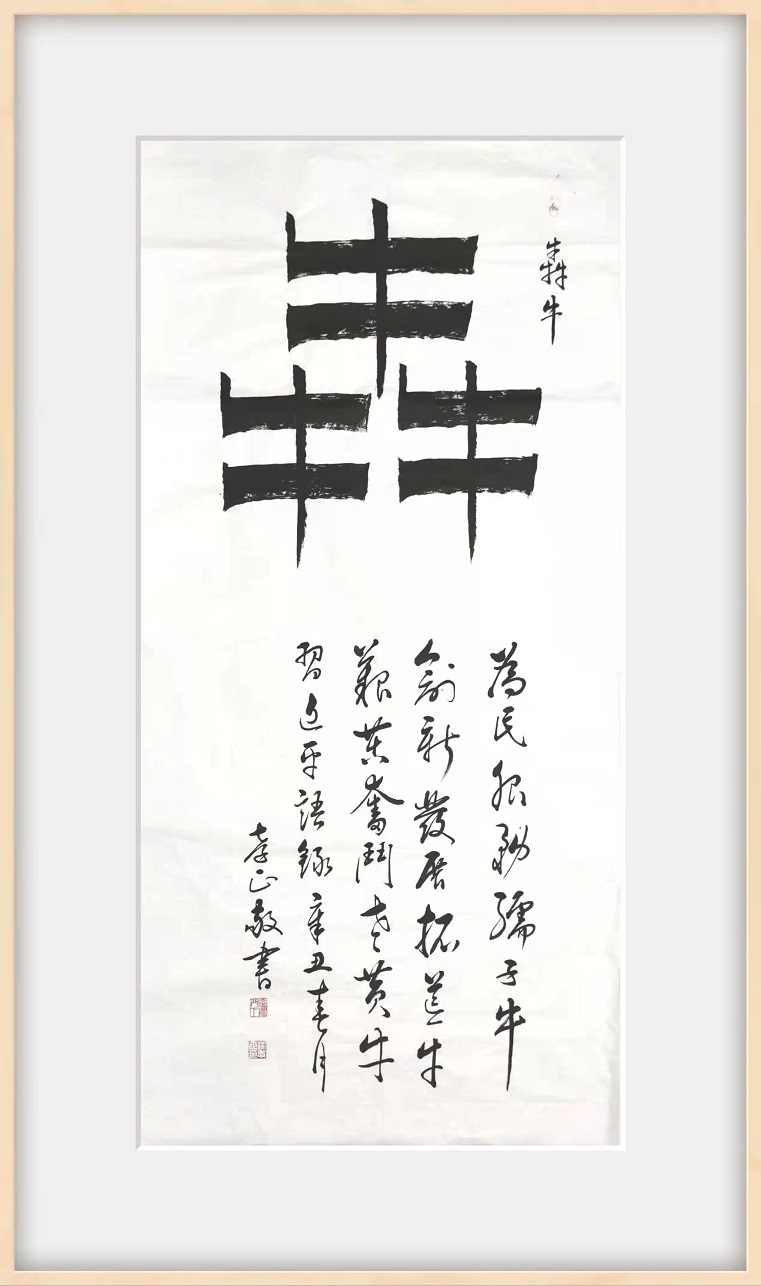 犇牛
犇
為民服務孺子牛
創新發展拓荒牛
艱苦奮鬥老黄牛
習近平語錄辛丑春月
孝正敬書